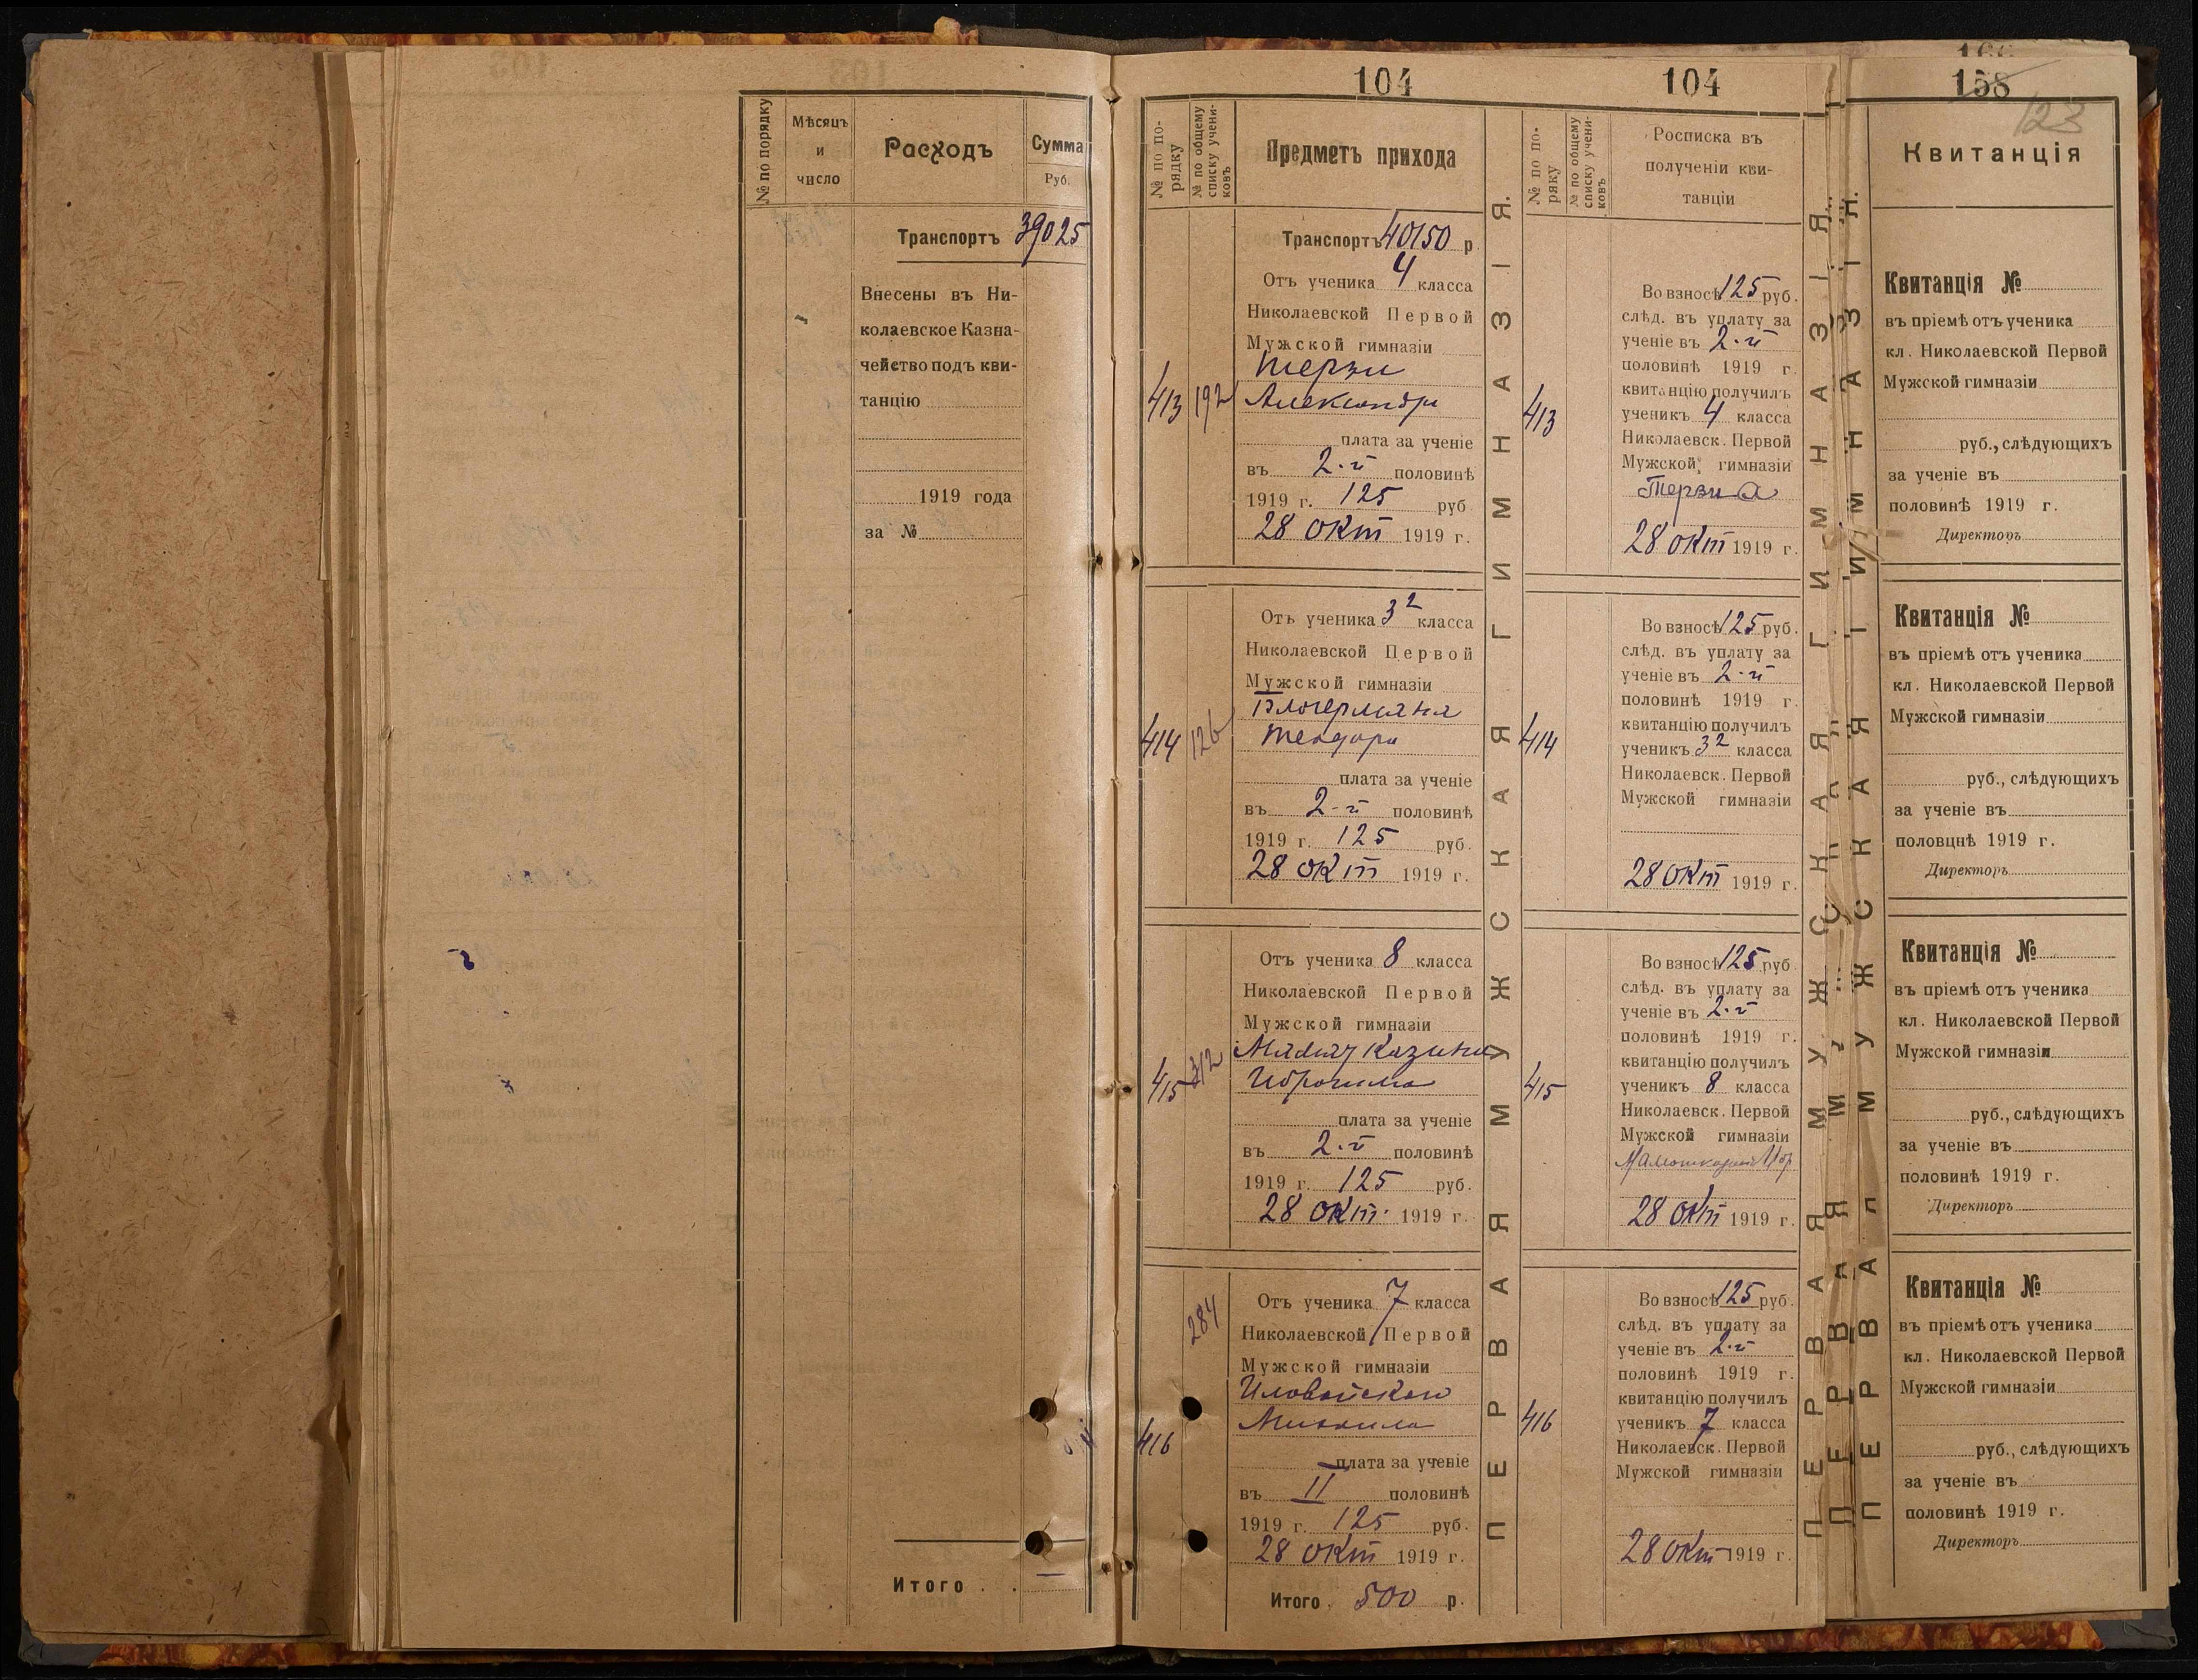 № по порядку
Мѣсяцъ
и
число
Расходъ
Сумма
Руб.
Транспортъ 39025
Внесены въ Ни-
колаевское Казна-
чейство подъ кви-
танцію
1919 года
за №
Итого . . —
104
№ по по-
рядку
№ по общему
списку учени-
ковъ
Предметъ прихода
Транспортъ 40150 р.
413
192
Отъ ученика 4 класса
Николаевской Первой
Мужской гимназіи
Терзи
Александра
плата за ученіе
въ 2-й половинѣ
1919 г. 125 руб
28 окт 1919 г.
414
126
Отъ ученика 3² класса
Николаевской Первой
Мужской гимназіи
Теодора
плата за ученіе
въ 2-й половинѣ
1919 г. 125 руб.
28 окт 1919 г.
415
312
Отъ ученика 8 класса
Николаевской Первой
Мужской гимназіи
плата за ученіе
въ 2-й половинѣ
1919 г. 125 руб.
28 окт. 1919 г.
416
284
Отъ ученика 7 класса
Николаевской Первой
Мужской гимназіи
Иловайскаго
Михаила
плата за ученіе
въ II половинѣ
1919 г. 125 руб.
28 окт 1919 г.
Итого . 500 р.
ПЕРВАЯ МУЖСКАЯ ГИМНАЗІЯ.
104
№ по по-
ряку
№ по общему
списку учени-
ковъ
Росписка въ
полученіи кви-
танціи
413
Во взносѣ 125 руб.
слѣд. въ уплату за
ученіе въ 2-й
половинѣ 1919 г.
квитанцію получилъ
ученикъ 4 класса
Николаевск. Первой
Мужской гимназіи
Терзи А
28 окт 1919 г.
414
Во взносѣ 125 руб.
слѣд. въ уплату за
ученіе въ 2-й
половинѣ 1919 г.
квитанцію получилъ
ученикъ 3² класса
Николаевск. Первой
Мужской гимназіи
28 окт 1919 г.
415
Во взносѣ 125 руб
слѣд. въ уплату за
ученіе въ 2-й
половинѣ 1919 г.
квитанцію получилъ
ученикъ 8 класса
Николаевск. Первой
Мужской гимназіи
28 окт 1919 г.
416
Во взносѣ 125 руб.
слѣд. въ уплату за
ученіе въ 2-й
половинѣ 1919 г.
квитанцію получилъ
ученикъ 7 класса
Николаевск. Первой
Мужской гимназіи
28 окт 1919 г.
ПЕРВАЯ МУЖСКАЯ ГИМНАЗІЯ.
ПЕРВАЯ МУЖСКАЯ ГИМНАЗІЯ.
158
123
Квитанція
Квитанція №
въ пріемѣ отъ ученика
кл. Николаевской Первой
Мужской гимназіи
руб., слѣдующихъ
за ученіе въ
половинѣ 1919 г.
Директоръ
Квитанція №
въ пріемѣ отъ ученика
кл. Николаевской Первой
Мужской гимназіи
руб., слѣдующихъ
за ученіе въ
половцнѣ 1919 г.
Директоръ
Квитанція №
въ пріемѣ отъ ученика
кл. Николаевской Первой
Мужской гимназіи
руб., слѣдующихъ
за ученіе въ
половинѣ 1919 г.
Директоръ
Квитанція №
въ пріемѣ отъ ученика
кл. Николаевской Первой
Мужской гимназіи
руб., слѣдующихъ
за ученіе въ
половинѣ 1919 г.
Директоръ